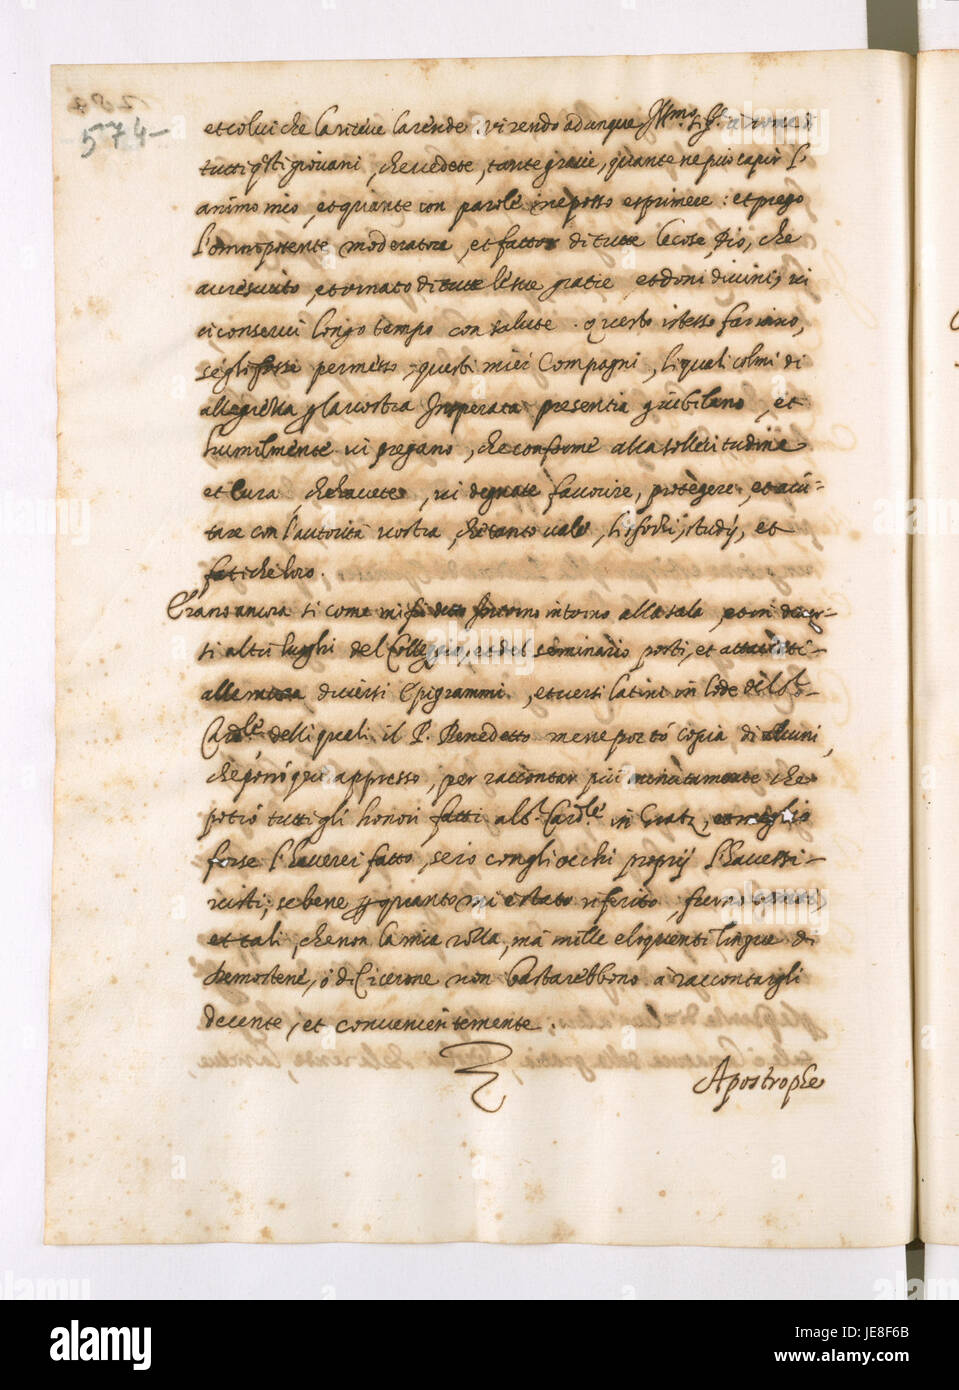 574
et colui che la riceve la rende. vi rendo adunque Ill.mo
tutti q̃sti giovani, che vedete, tante gratie, quante ne può capir l'
animo mio, et quante con parole ne posso esprimere: et prego
l'omnipotente moderatore, et fattor di tutte le cose, Dio, che
accresciuto, et ornato di tutte le sue gratie, et doni divini, vi
vi conservi longo tempo con salute. Questo istesso fariano,
se gli fosse permesso, questi miei Compagni, li quali colmi di
allegrezza p̱ la vostra Insperata presentia giubilano, et
humilmente vi pregano, che conforme alla sollecitudine
et cura, che havete, vi degnate favorire, protegere, et aiu=
tare con l'autorità vostra, che tanto vale, li sforzi, studij, et
fatiche loro.
Erano ancora si come mi fu detto intorno intorno alla sala, et in diver-
si altri lughi del Colleggio, et del seminario posti, et attaccati
alle mura diversi Epigrammi, et versi latini in lode del
Card.le delli quali il P. Benedetto me ne portò copia di alcuni,
che porrò qui appresso, per raccontar più minutamente che
potrò tutti gli honori fatti al Card.le in Gratz, et meglio
forse l'haverei fatto, se io con gli occhi proprij l'havessi
visti; se bene p̱ quanto mi è stato riferito, furno
et tali, che non la mia rozza, mà mille eloquenti lingue di
Demostene, ò di Cicerone non bastarebbono à raccontargli
decente, et convenientemente.
Apostrophe
alamy
JE8F6B
www.alamy.com